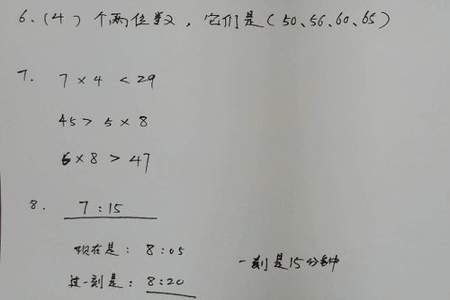 6. (4) 个两位数，它们是(50、56、60、65)
7. 7×4 <29
45> 5×8
6×8 > 47
8. 7:15
现在是: 8:05
过一刻是: 8:20
一刻是15分钟